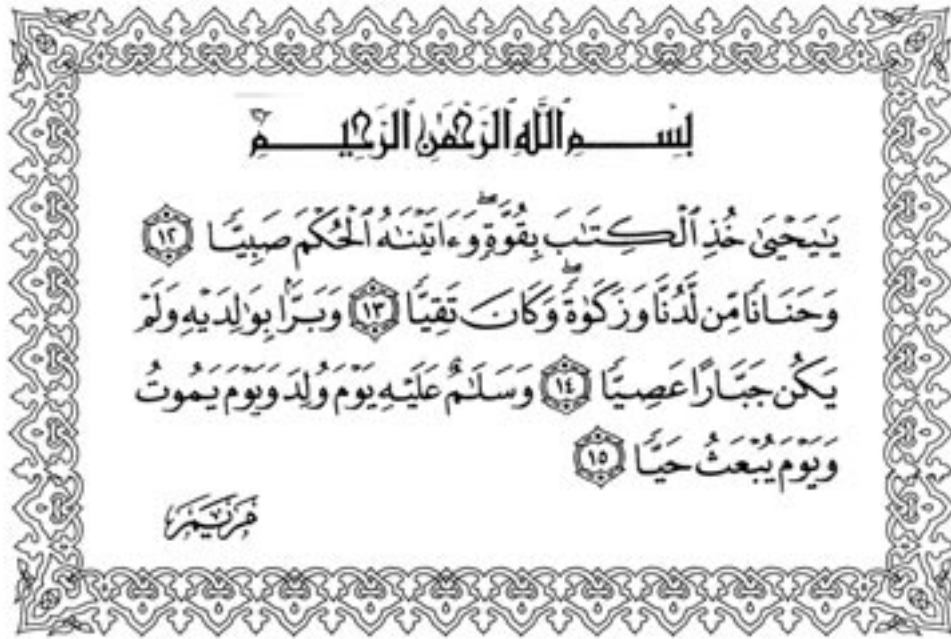 بِسْمِ ٱللَّهِ ٱلرَّحْمَٰنِ ٱلرَّحِيمِ
يَٰيَحْيَىٰ خُذِ ٱلْكِتَٰبَ بِقُوَّةٖۖ وَءَاتَيْنَٰهُ ٱلْحُكْمَ صَبِيّٗا ١٢
وَحَنَانٗا مِّن لَّدُنَّا وَزَكَوٰةٗۖ وَكَانَ تَقِيّٗا ١٣ وَبَرَّۢا بِوَٰلِدَيْهِ وَلَمْ
يَكُن جَبَّارًا عَصِيّٗا ١٤ وَسَلَٰمٌ عَلَيْهِ يَوْمَ وُلِدَ وَيَوْمَ يَمُوتُ
وَيَوْمَ يُبْعَثُ حَيّٗا ١٥
مَرْيَم